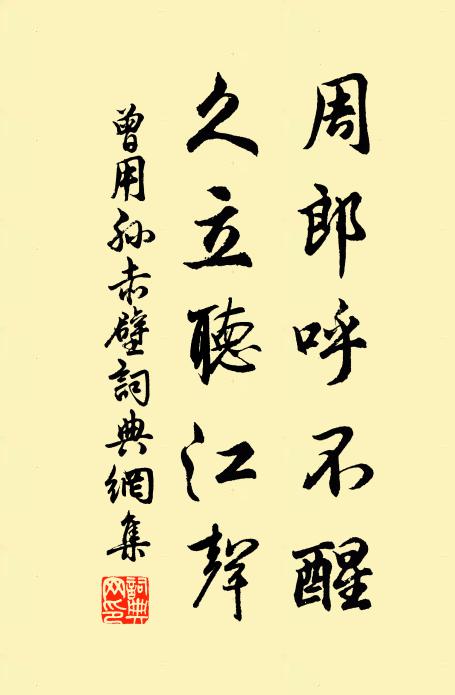 周郎呼不醒
久立聽江聲
曾用孫赤壁詞典網集
詞典網印